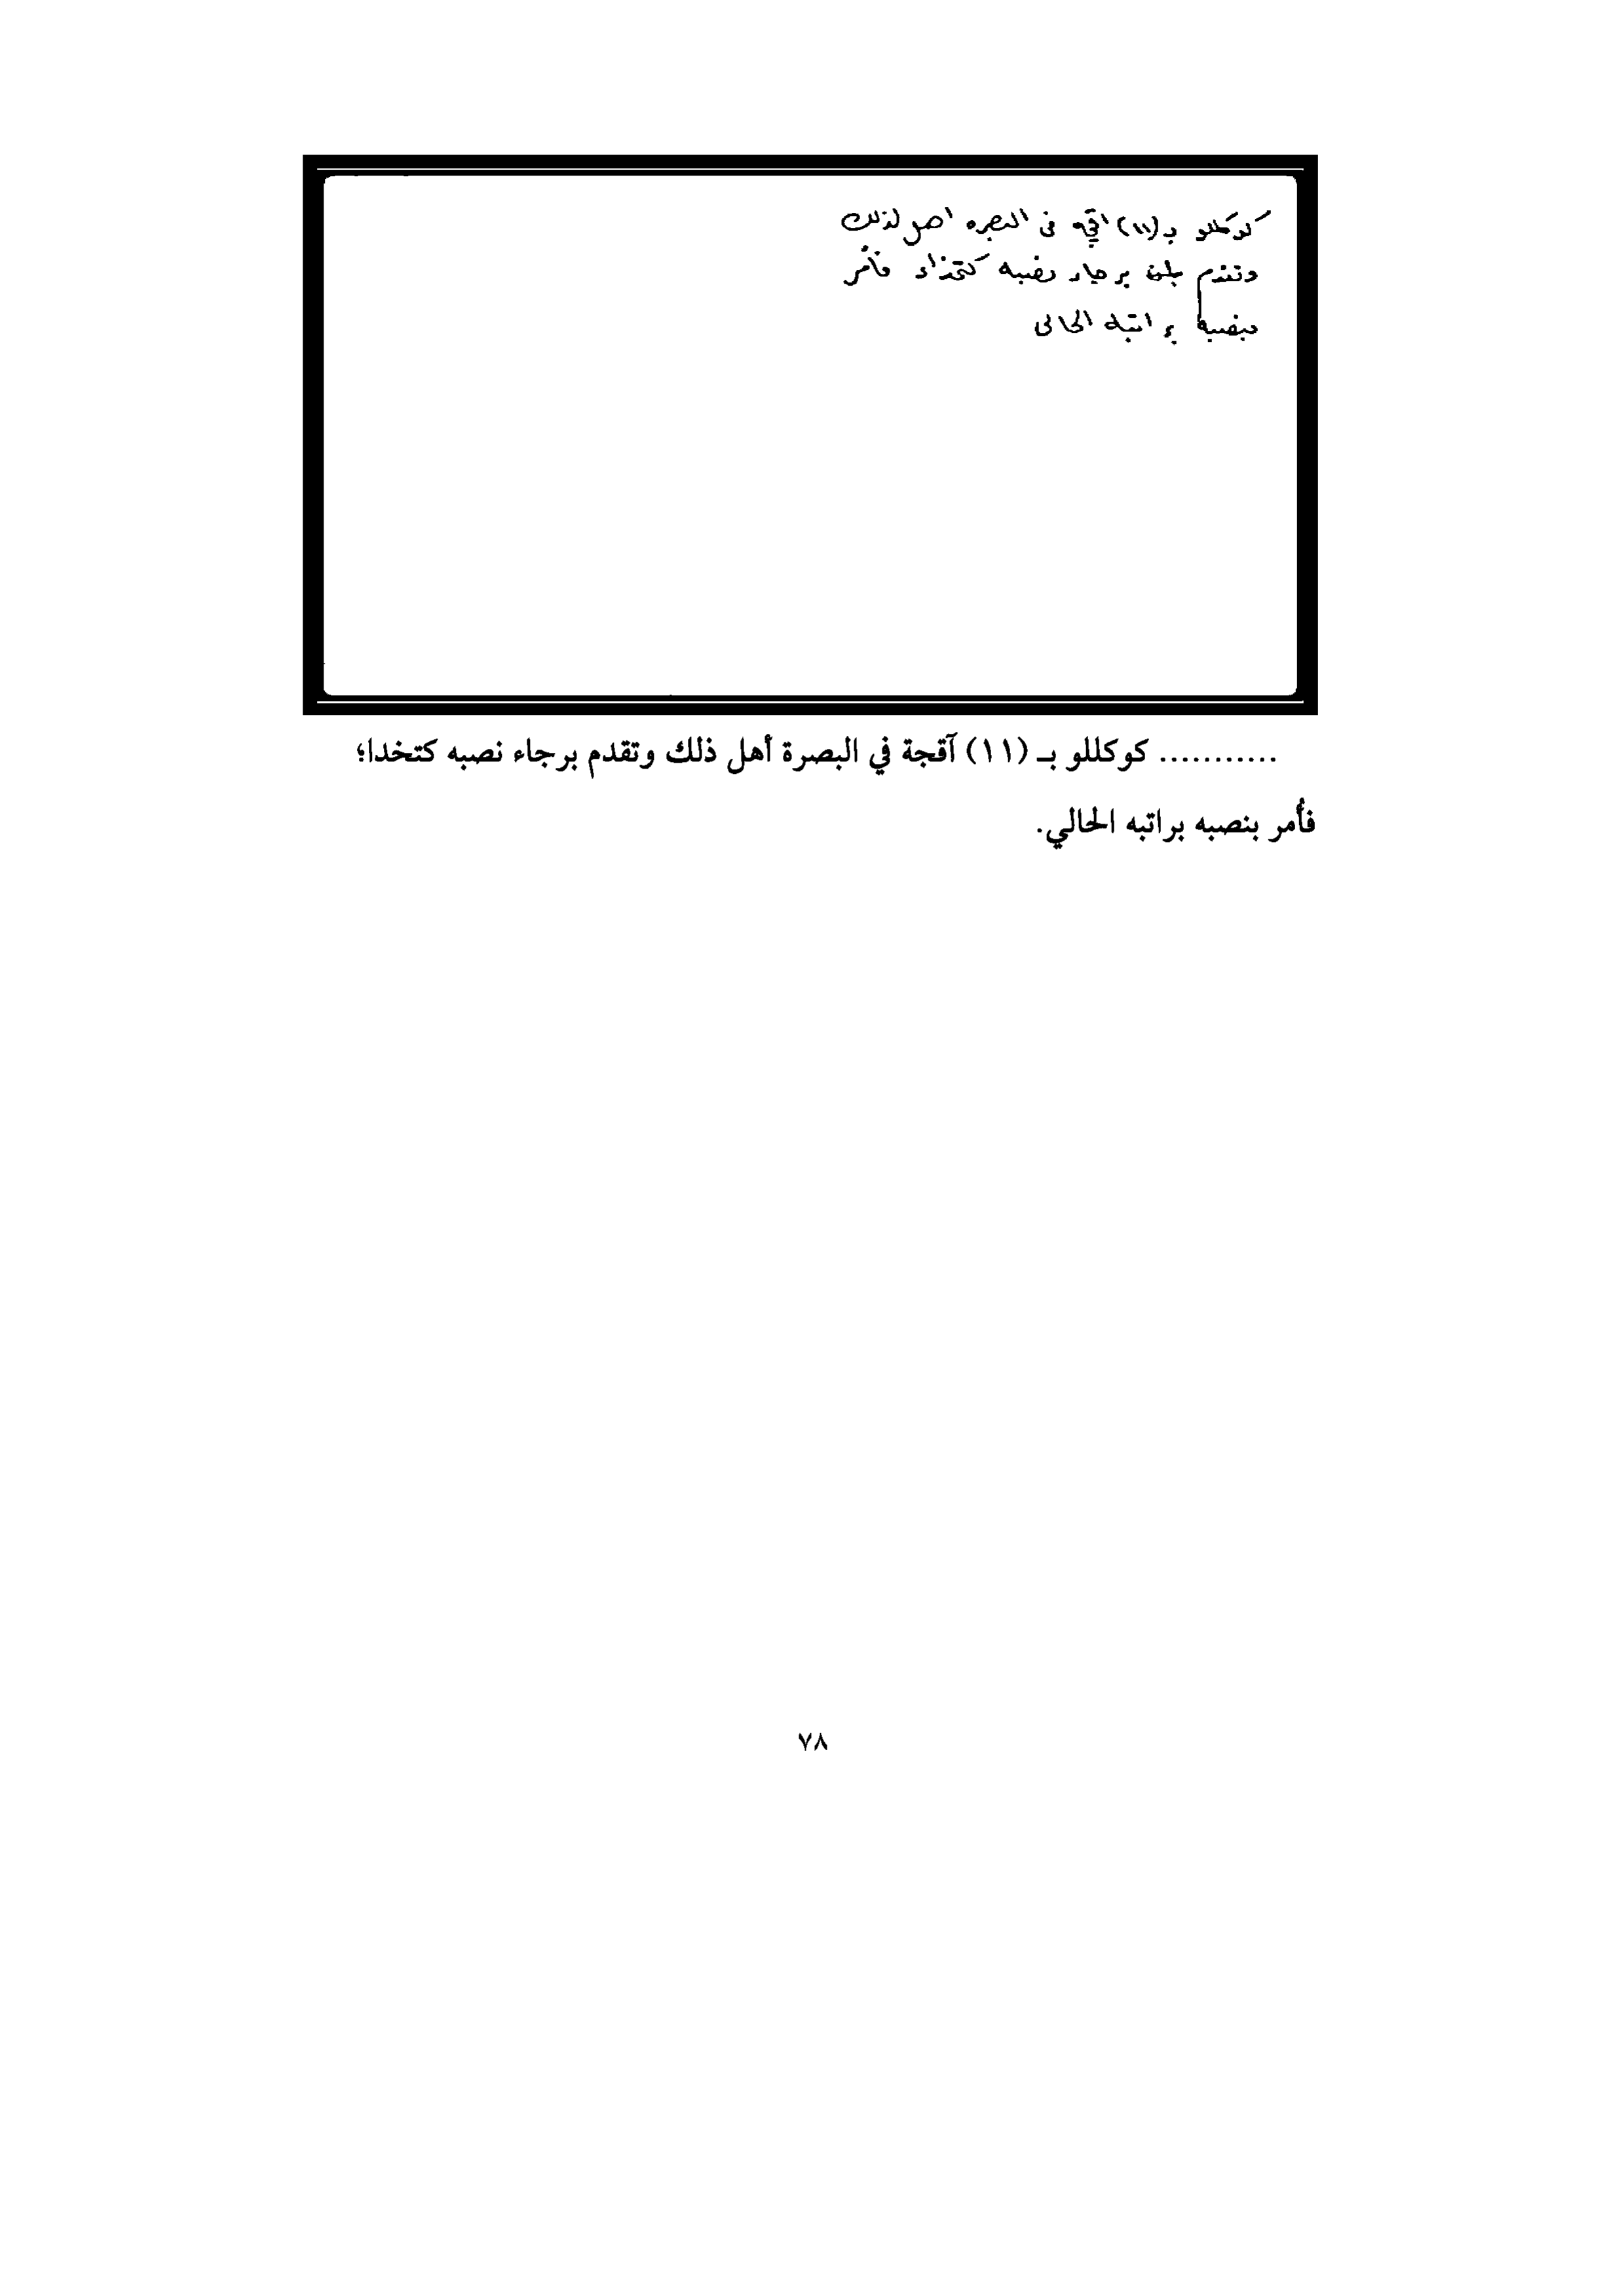 كوكللو بـ (١١) اقچه فى البصره اهل لذلك
وتقدم بطلب برجاء نصبه كتخداء فأمر
بنصبه براتبه الحالى
........... كوكللو بـ (١١) آقجة في البصرة أهل ذلك وتقدم برجاء نصبه كتخدا؛
فأمر بنصبه براتبه الحالي.
٧٨